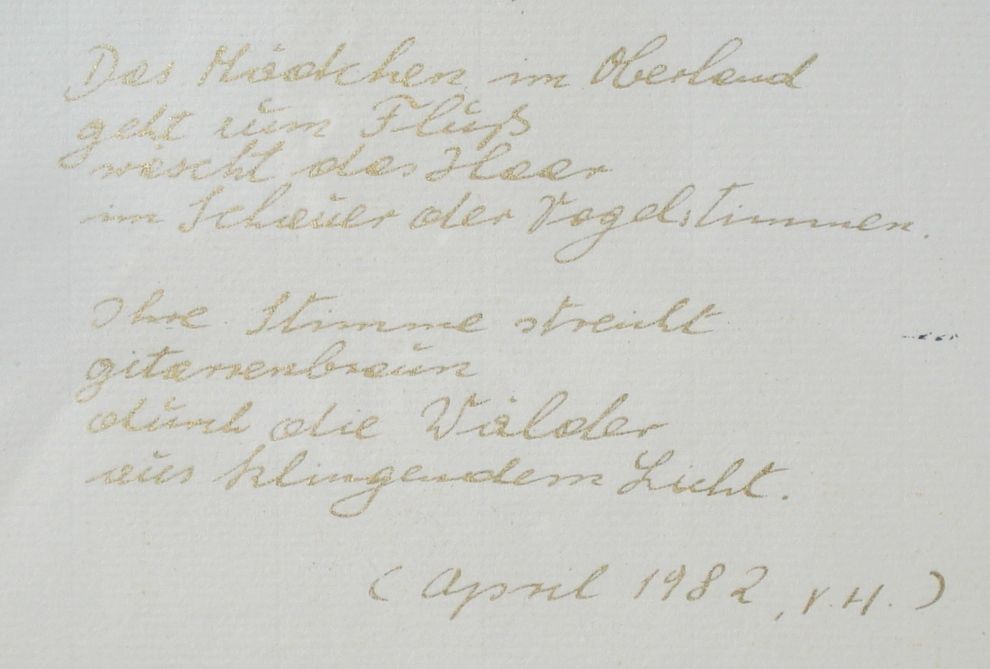 Das Mädchen im Oberland
geht zum Fluß
wäscht das Haar
im Schauer der Vogelstimmen.
Ihre Stimme streicht
gitarrenbraun
durch die Wälder
aus klingendem Licht.
(April 1982, V.H.)